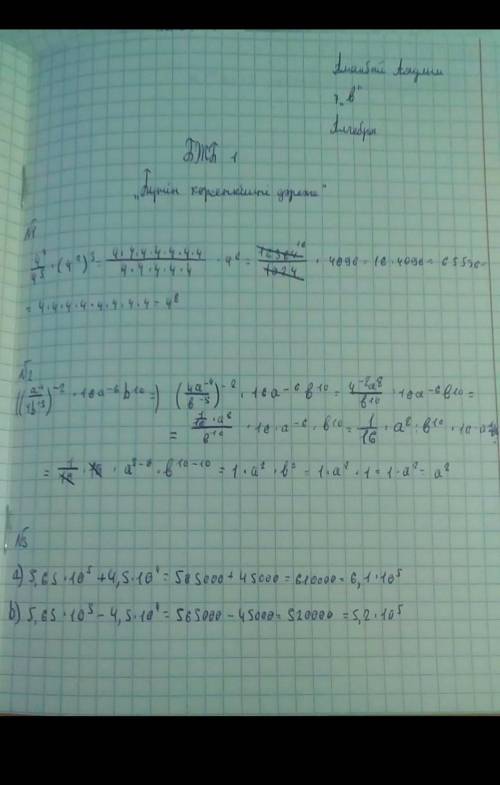 7 "в"
Алгебра
БЖБ 1
"Бүтін көрсеткішті дәреже"
№1
4⁷/4⁵ · (4²)³ = 4·4·4·4·4·4·4/4·4·4·4·4 · 4⁶ = 16384/1024 · 4096 = 16 · 4096 = 65536 =
= 4·4·4·4·4·4·4·4 = 4⁸
№2
· 16a⁻⁶b¹⁰ =) (4a⁻⁴/b⁻⁵)⁻² · 16a⁻⁶b¹⁰ = 4⁻²a⁸/b¹⁰ · 16a⁻⁶b¹⁰ =
= 1/16 · a⁸/b¹⁰ · 16 · a⁻⁶ · b¹⁰ = 1/16 · a⁸ : b¹⁰ · 16 · a⁻⁶
= 1/16 · 16 · a⁸⁻⁶ · b¹⁰⁻¹⁰ = 1 · a² · b⁰ = 1 · a² · 1 = 1 · a² = a²
№3
a) 5,65 · 10⁵ + 4,5 · 10⁴ = 565000 + 45000 = 610000 = 6,1 · 10⁵
b) 5,65 · 10⁵ - 4,5 · 10⁴ = 565000 - 45000 = 520000 = 5,2 · 10⁵